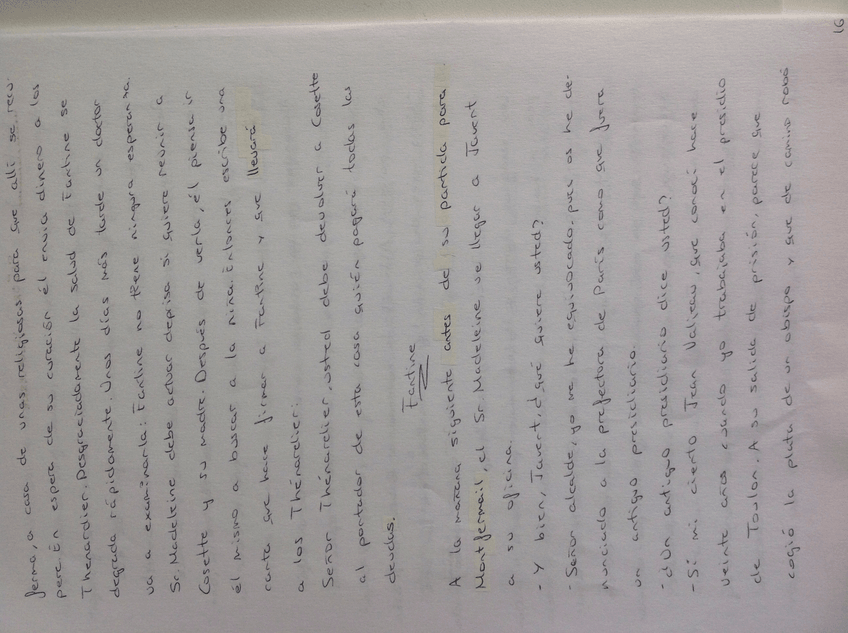 fermo, a casa de unas religiosas para que allí se recu-
pere. En espera de su curación él envia dinero a los
Thénardier. Desgraciadamente la salud de Fantine se
degrada rápidamente. Unos días más tarde un doctor
va a examinarla: Fantine no tiene ninguna esperanza.
Sr. Madeleine debe actuar deprisa si quiere reunir a
Cosette y su madre. Después de verla, él piensa ir
él mismo a buscar a la niña. Entonces escribe una
carta que hace firmar a Fantine y que llevará
a los Thénardier:
Señor Thénardier, usted debe devolver a Cosette
al portador de esta casa quién pagará todas las
deudas.
Fantine
A la mañana siguiente antes de su partida para
Montfermail, el Sr. Madeleine ve llegar a Javert
a su oficina.
- Y bien, Javert, ¿qué quiere usted?
- Señor alcalde, yo me he equivocado, pues os he de-
nunciado a la prefectora de París como que fuera
un antiguo presidiario.
- ¿Un antiguo presidiario dice usted?
- Sí mi cierto Jean Valjean, que conocí hace
veinte años cuando yo trabajaba en el presidio
de Toulon. A su salida de prisión, parece que
cogió la plata de un obispo y que de camino robó
16